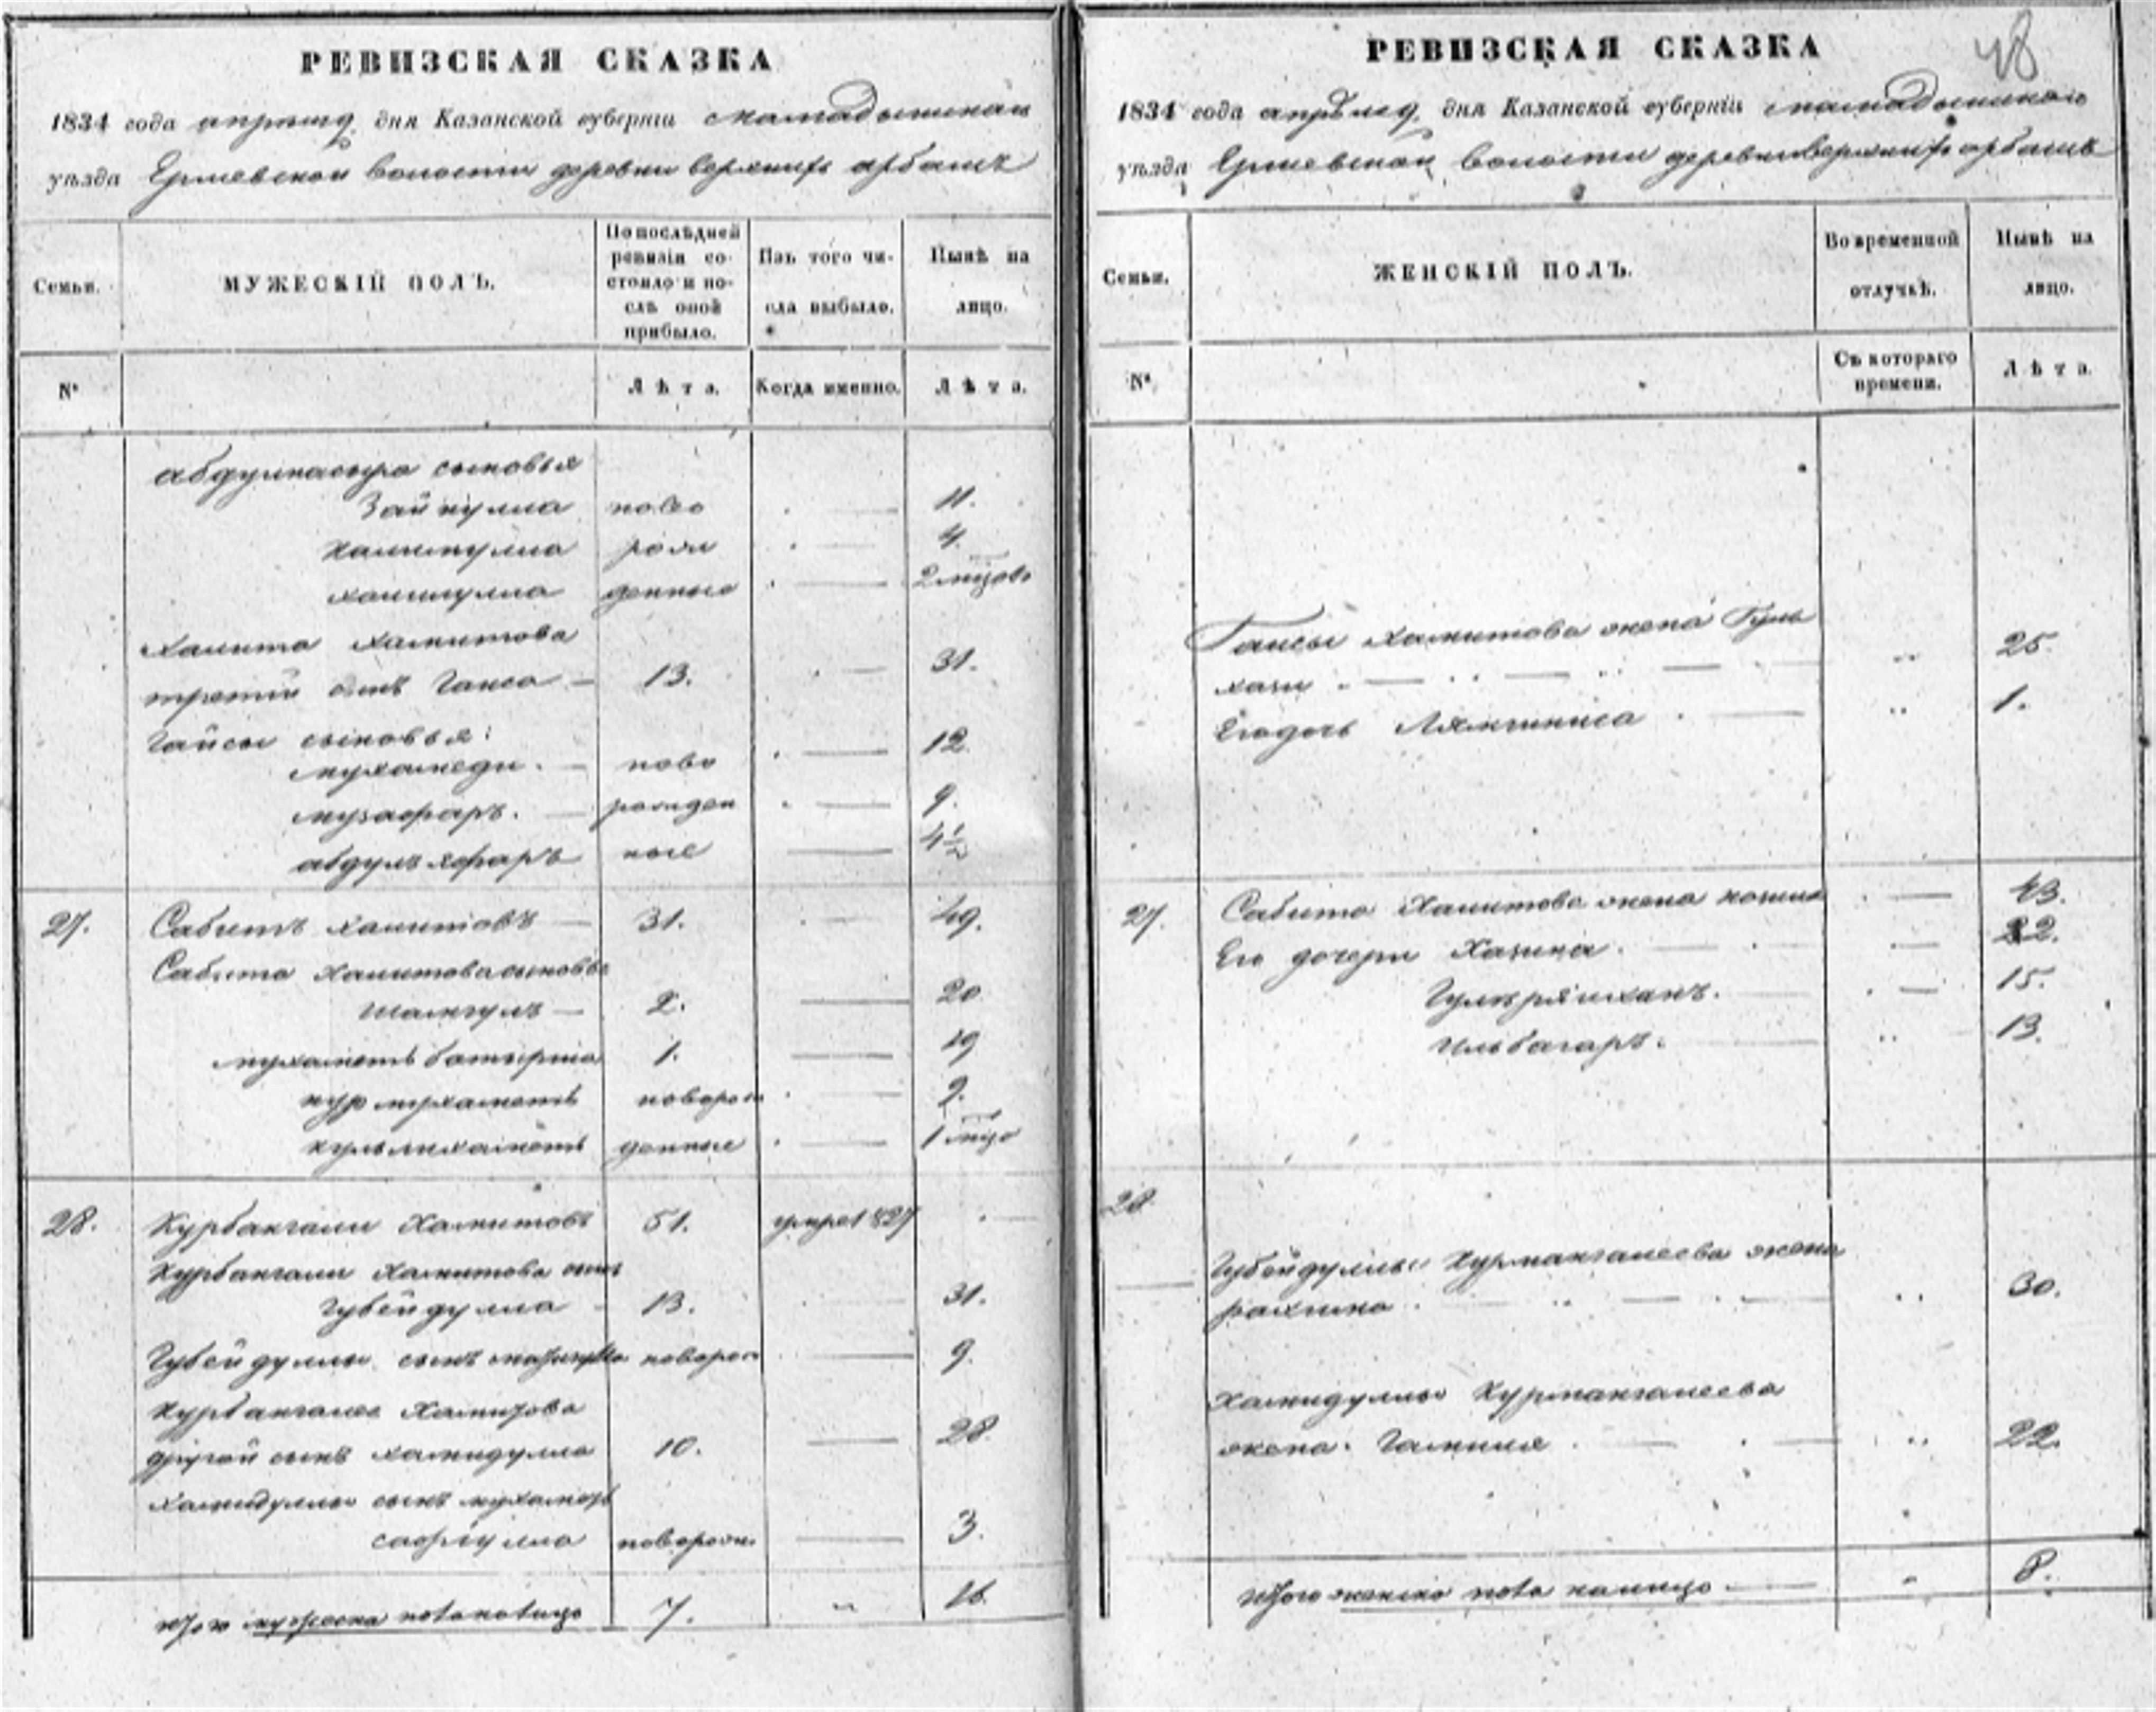 РЕВИЗСКАЯ СКАЗКА
1834 года апреля 9 дня Казанской губерніи мамадышскаго
уѣзда Ермевской волости деревни верхнихъ арбашъ
Семьи.
МУЖЕСКІЙ ПОЛЪ.
По послѣдней ревизіи состояло и послѣ оной прибыло.
Изъ того числа выбыло.
Нынѣ на лицо.
№
Лѣта.
Когда именно.
Лѣта.
абдулнасыра сыновья
Зайнулла ново 11.
рож 4.
денные 2 мцовъ
Халита Хамитова
третій сынъ Гайса 13. 31.
Гайсы сыновья:
мухамеди. ново 12
музафаръ. рожден 9.
ные 4½
27. Сабитъ Хамитовъ 31. 49.
Сабита Хамитова сыновья
Шамгулъ 2. 20
мухаметь батырша 1. 19
нур мухаметь новорож 9.
кульмухаметь денные 1 мцо
28. Курбангали Хамитовъ 51. умре 1827
Курбангали Хамитова сынъ
Губейдулла 13. 31.
Губейдуллы сынъ новорож 9.
Курбангалее Хамитова
другой сынъ хамидулла 10. 28.
Хамидуллы сынъ мухаметь
сафиулла новорож. 3.
Итого мужеска пола налицо 7. 16
48
РЕВИЗСКАЯ СКАЗКА
1834 года апрѣля 9 дня Казанской губерніи мамадышскаго
уѣзда Ермевской волости деревни верхнихъ арбашъ
Семьи.
ЖЕНСКІЙ ПОЛЪ.
Во временной отлучкѣ.
Нынѣ на лицо.
№
Съ котораго времени.
Лѣта.
Гайсы Хамитова жена Гуль
хази 25.
Его дочь 1.
27. Сабита Хамитова жена 43.
Его дочери Хазина. 22.
15.
Ильбагаръ. 13.
28.
Губейдуллы Курмангалеева жена
рахима 30.
Хамидуллы Курмангалеева
жена. Гамиля 22.
Итого женска пола налицо 8.